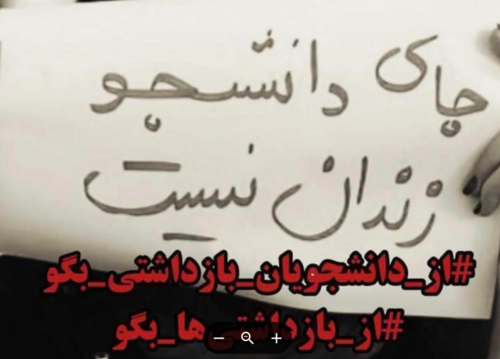 جای دانشجو
زندان نیست
#از_دانشجویان_بازداشتی_بگو
#از_بازداشتی_ها_بگو